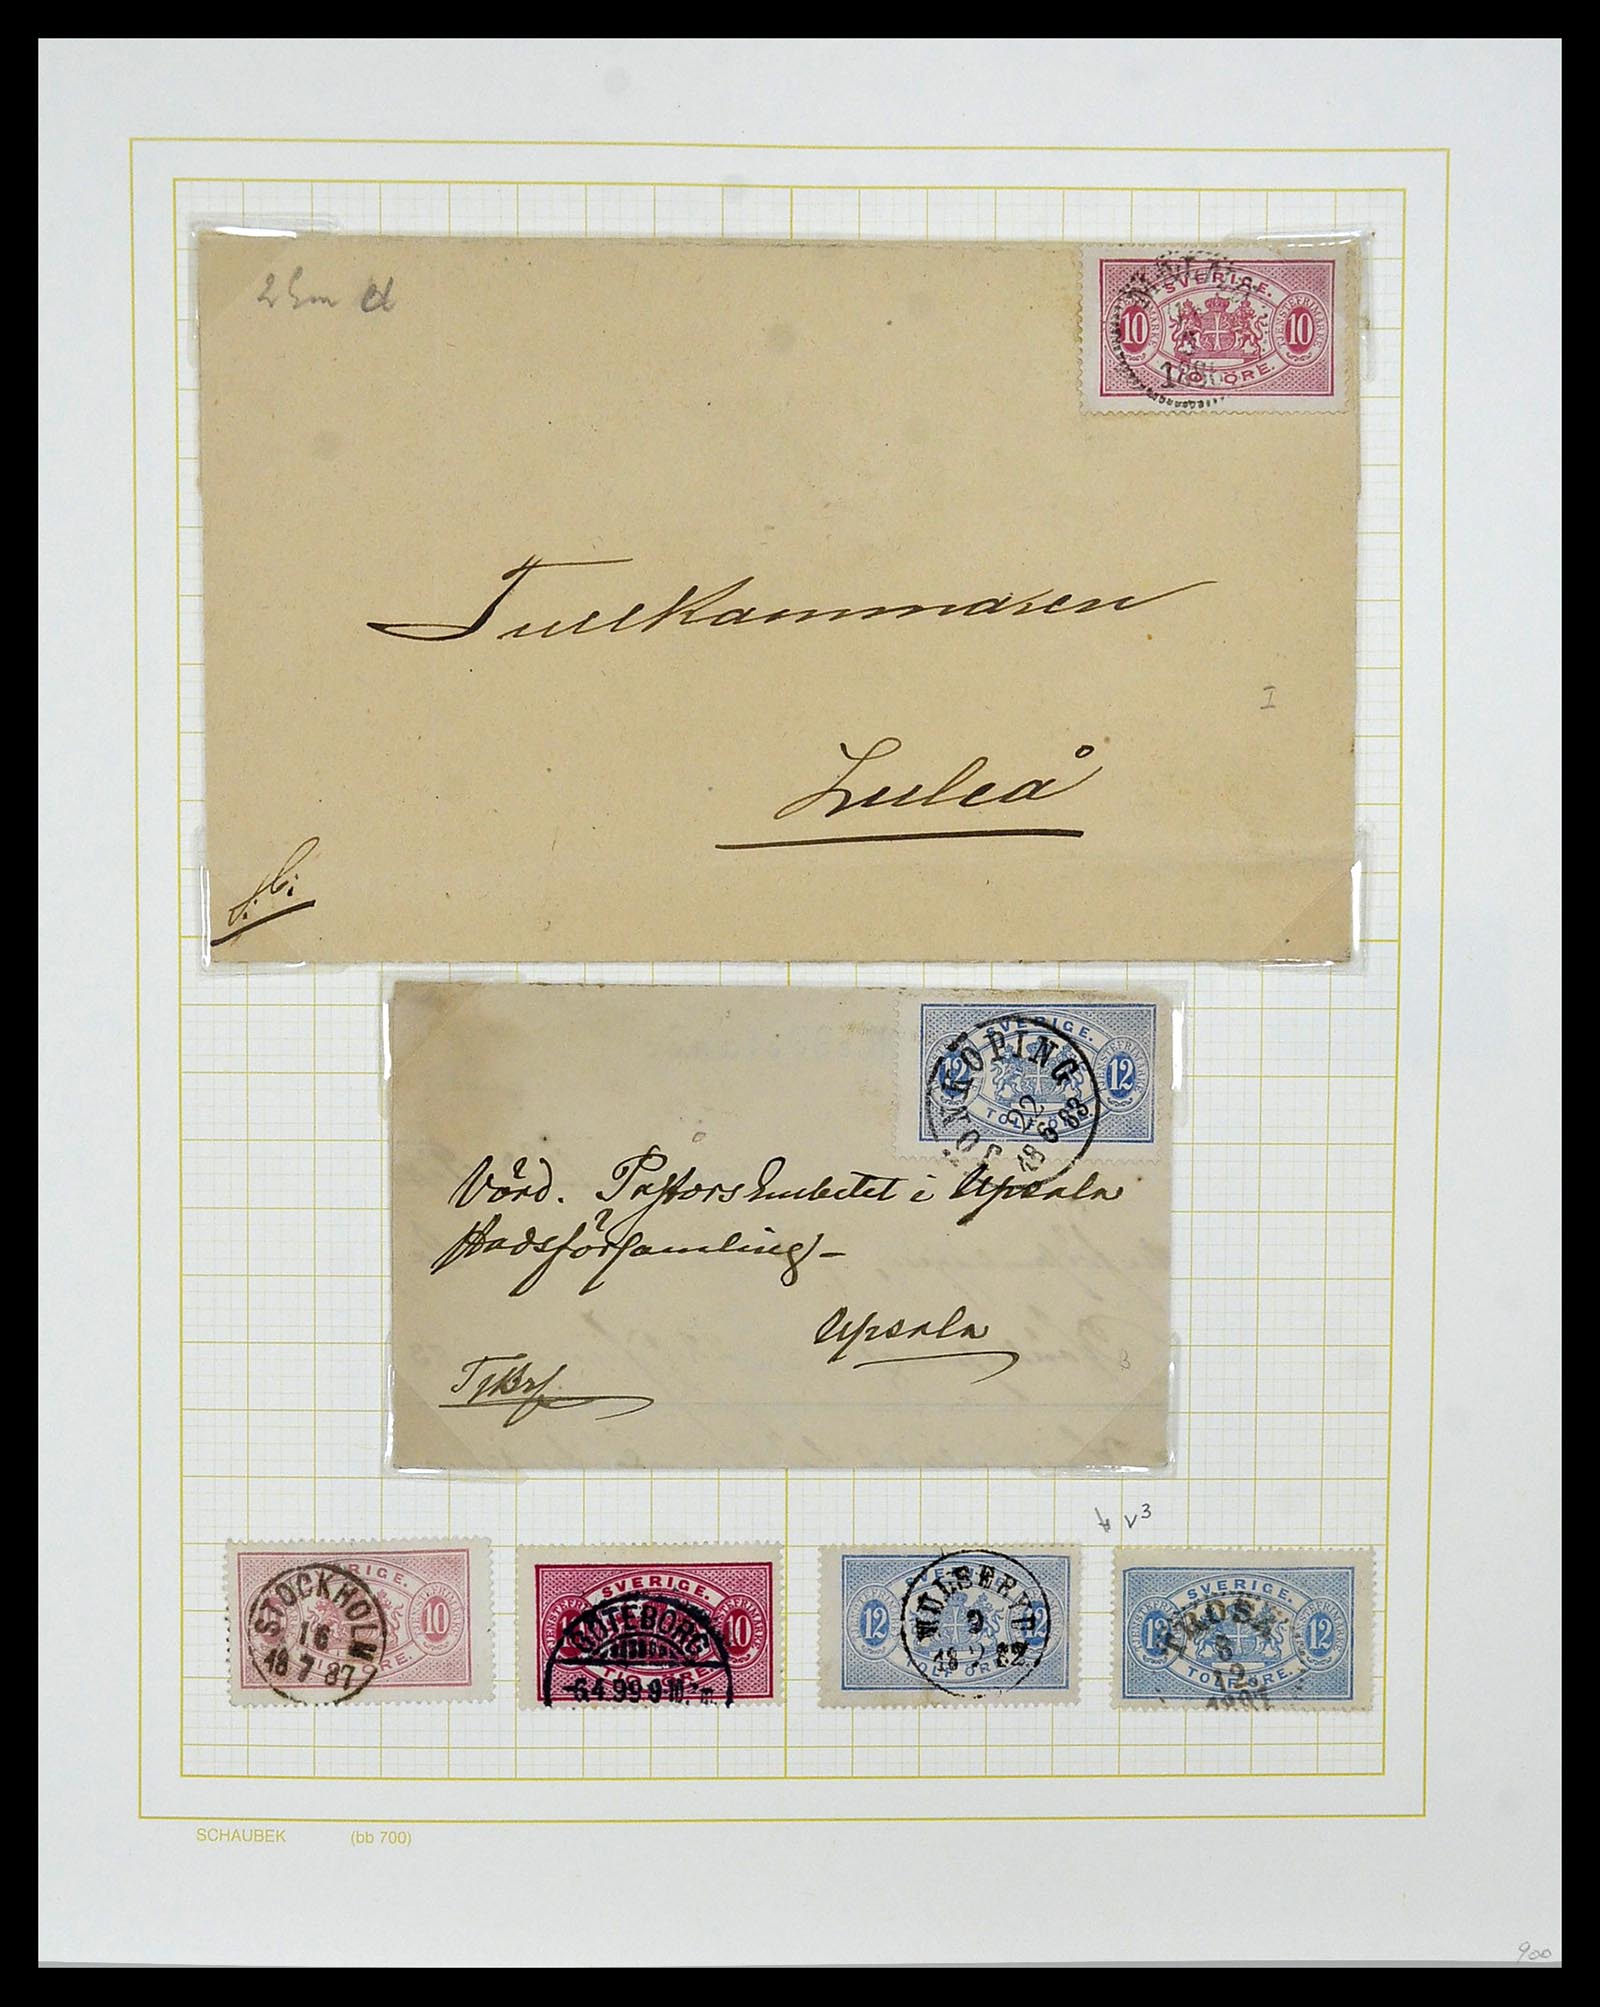 SVERIGE.
10 10
TJENSTEFRIMÄRKE TJENSTEFRIMÄRKE
TIO ÖRE.
Tullkammaren
I
Luleå
SVERIGE.
12 12
TOLF ÖRE.
JÖNKÖPING
22
18 6 83
Vörd. Pastorsembetet i Upsala
Stadsförsamling
Upsala
TjBrf
v3
SVERIGE.
10
TIO ÖRE.
STOCKHOLM
16
18 7 87
SVERIGE.
10 10
TIO ÖRE.
GÖTEBORG
6.4.99 9
SVERIGE.
12 12
TOLF ÖRE.
WULSERYD
9
18 82
SVERIGE.
12 12
TOLF ÖRE.
TROSA
8
12
SCHAUBEK (bb 700)
900